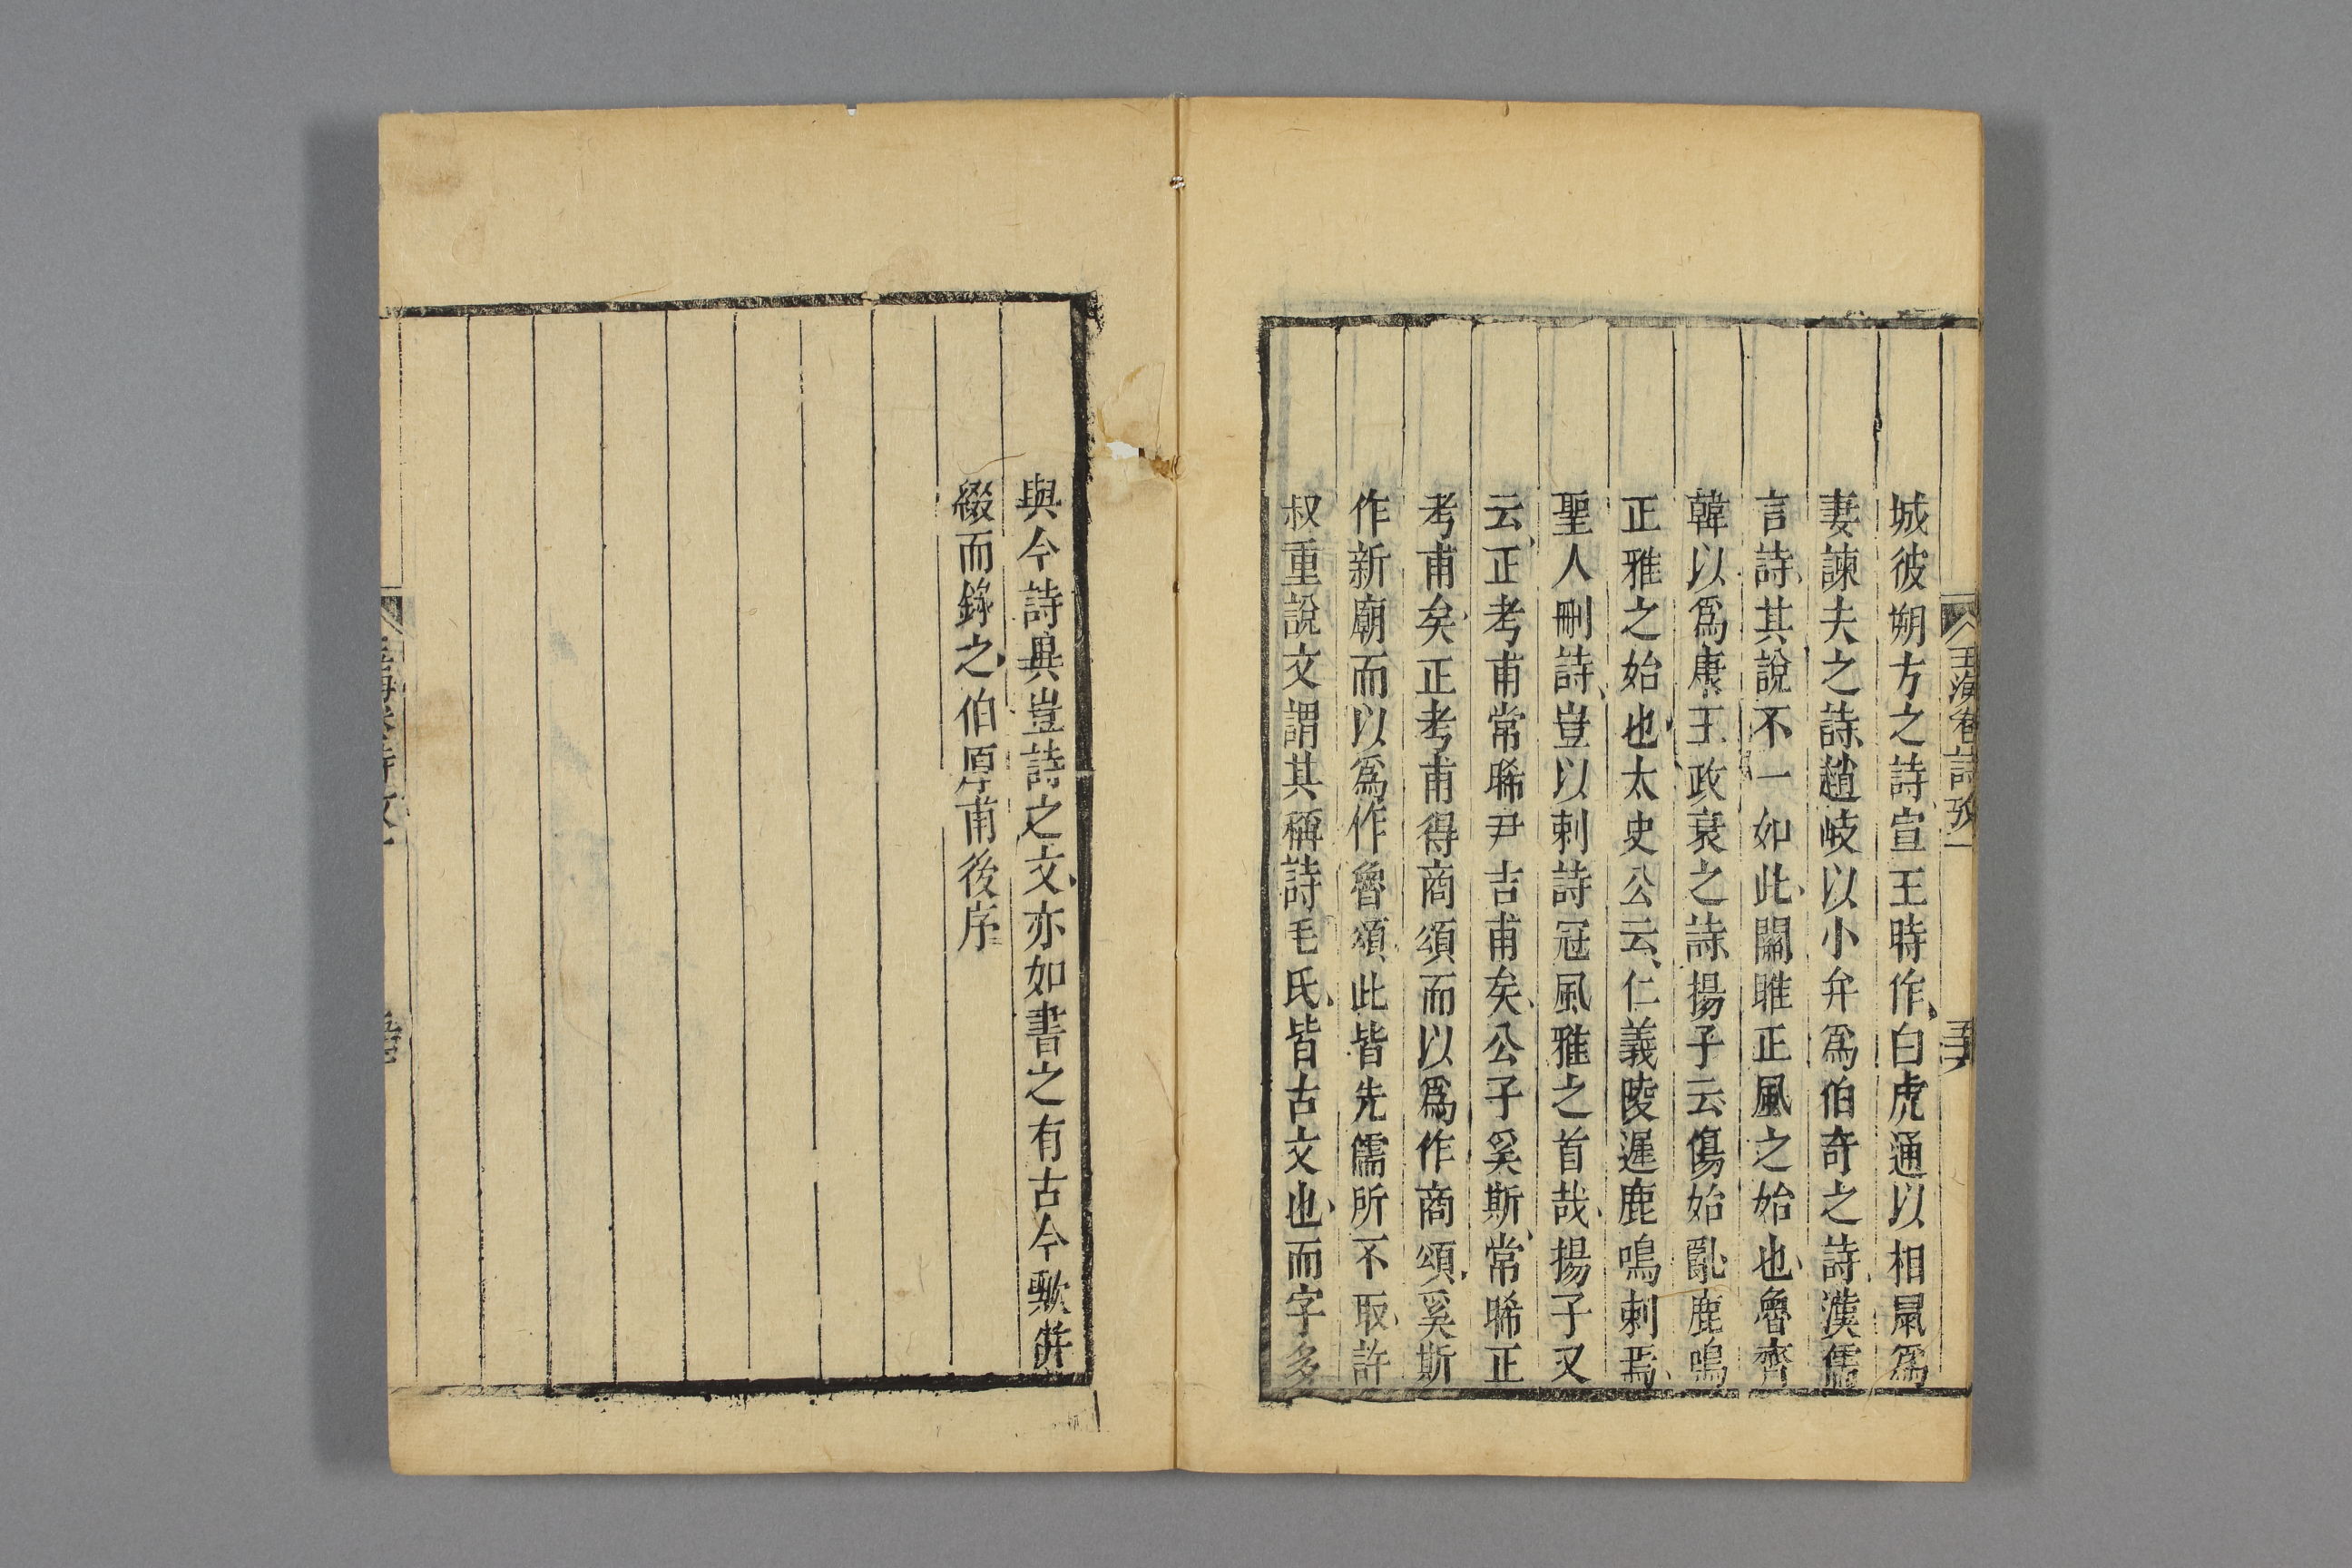 城彼朔方之詩宣王時作、白虎通以相鼠爲
妻諫夫之詩、趙岐以小弁爲伯奇之詩、漢儒
言詩、其說不一如此、關雎正風之始也、魯齊
韓以爲康王政衰之詩、揚子云傷始亂、鹿鳴
正雅之始也、太史公云、仁義陵遲鹿鳴刺焉、
聖人刪詩、豈以刺詩冠風雅之首哉、揚子又
云、正考甫常睎尹吉甫矣、公子奚斯、常睎正
考甫矣、正考甫得商頌而以爲作商頌、奚斯
作新廟而以爲作魯頌、此皆先儒所不取、許
叔重說文謂其稱詩毛氏、皆古文也、而字多
玉海卷詩攷一
與今詩異豈詩之文、亦如書之有古今歟幷
綴而錄之、伯厚甫後序